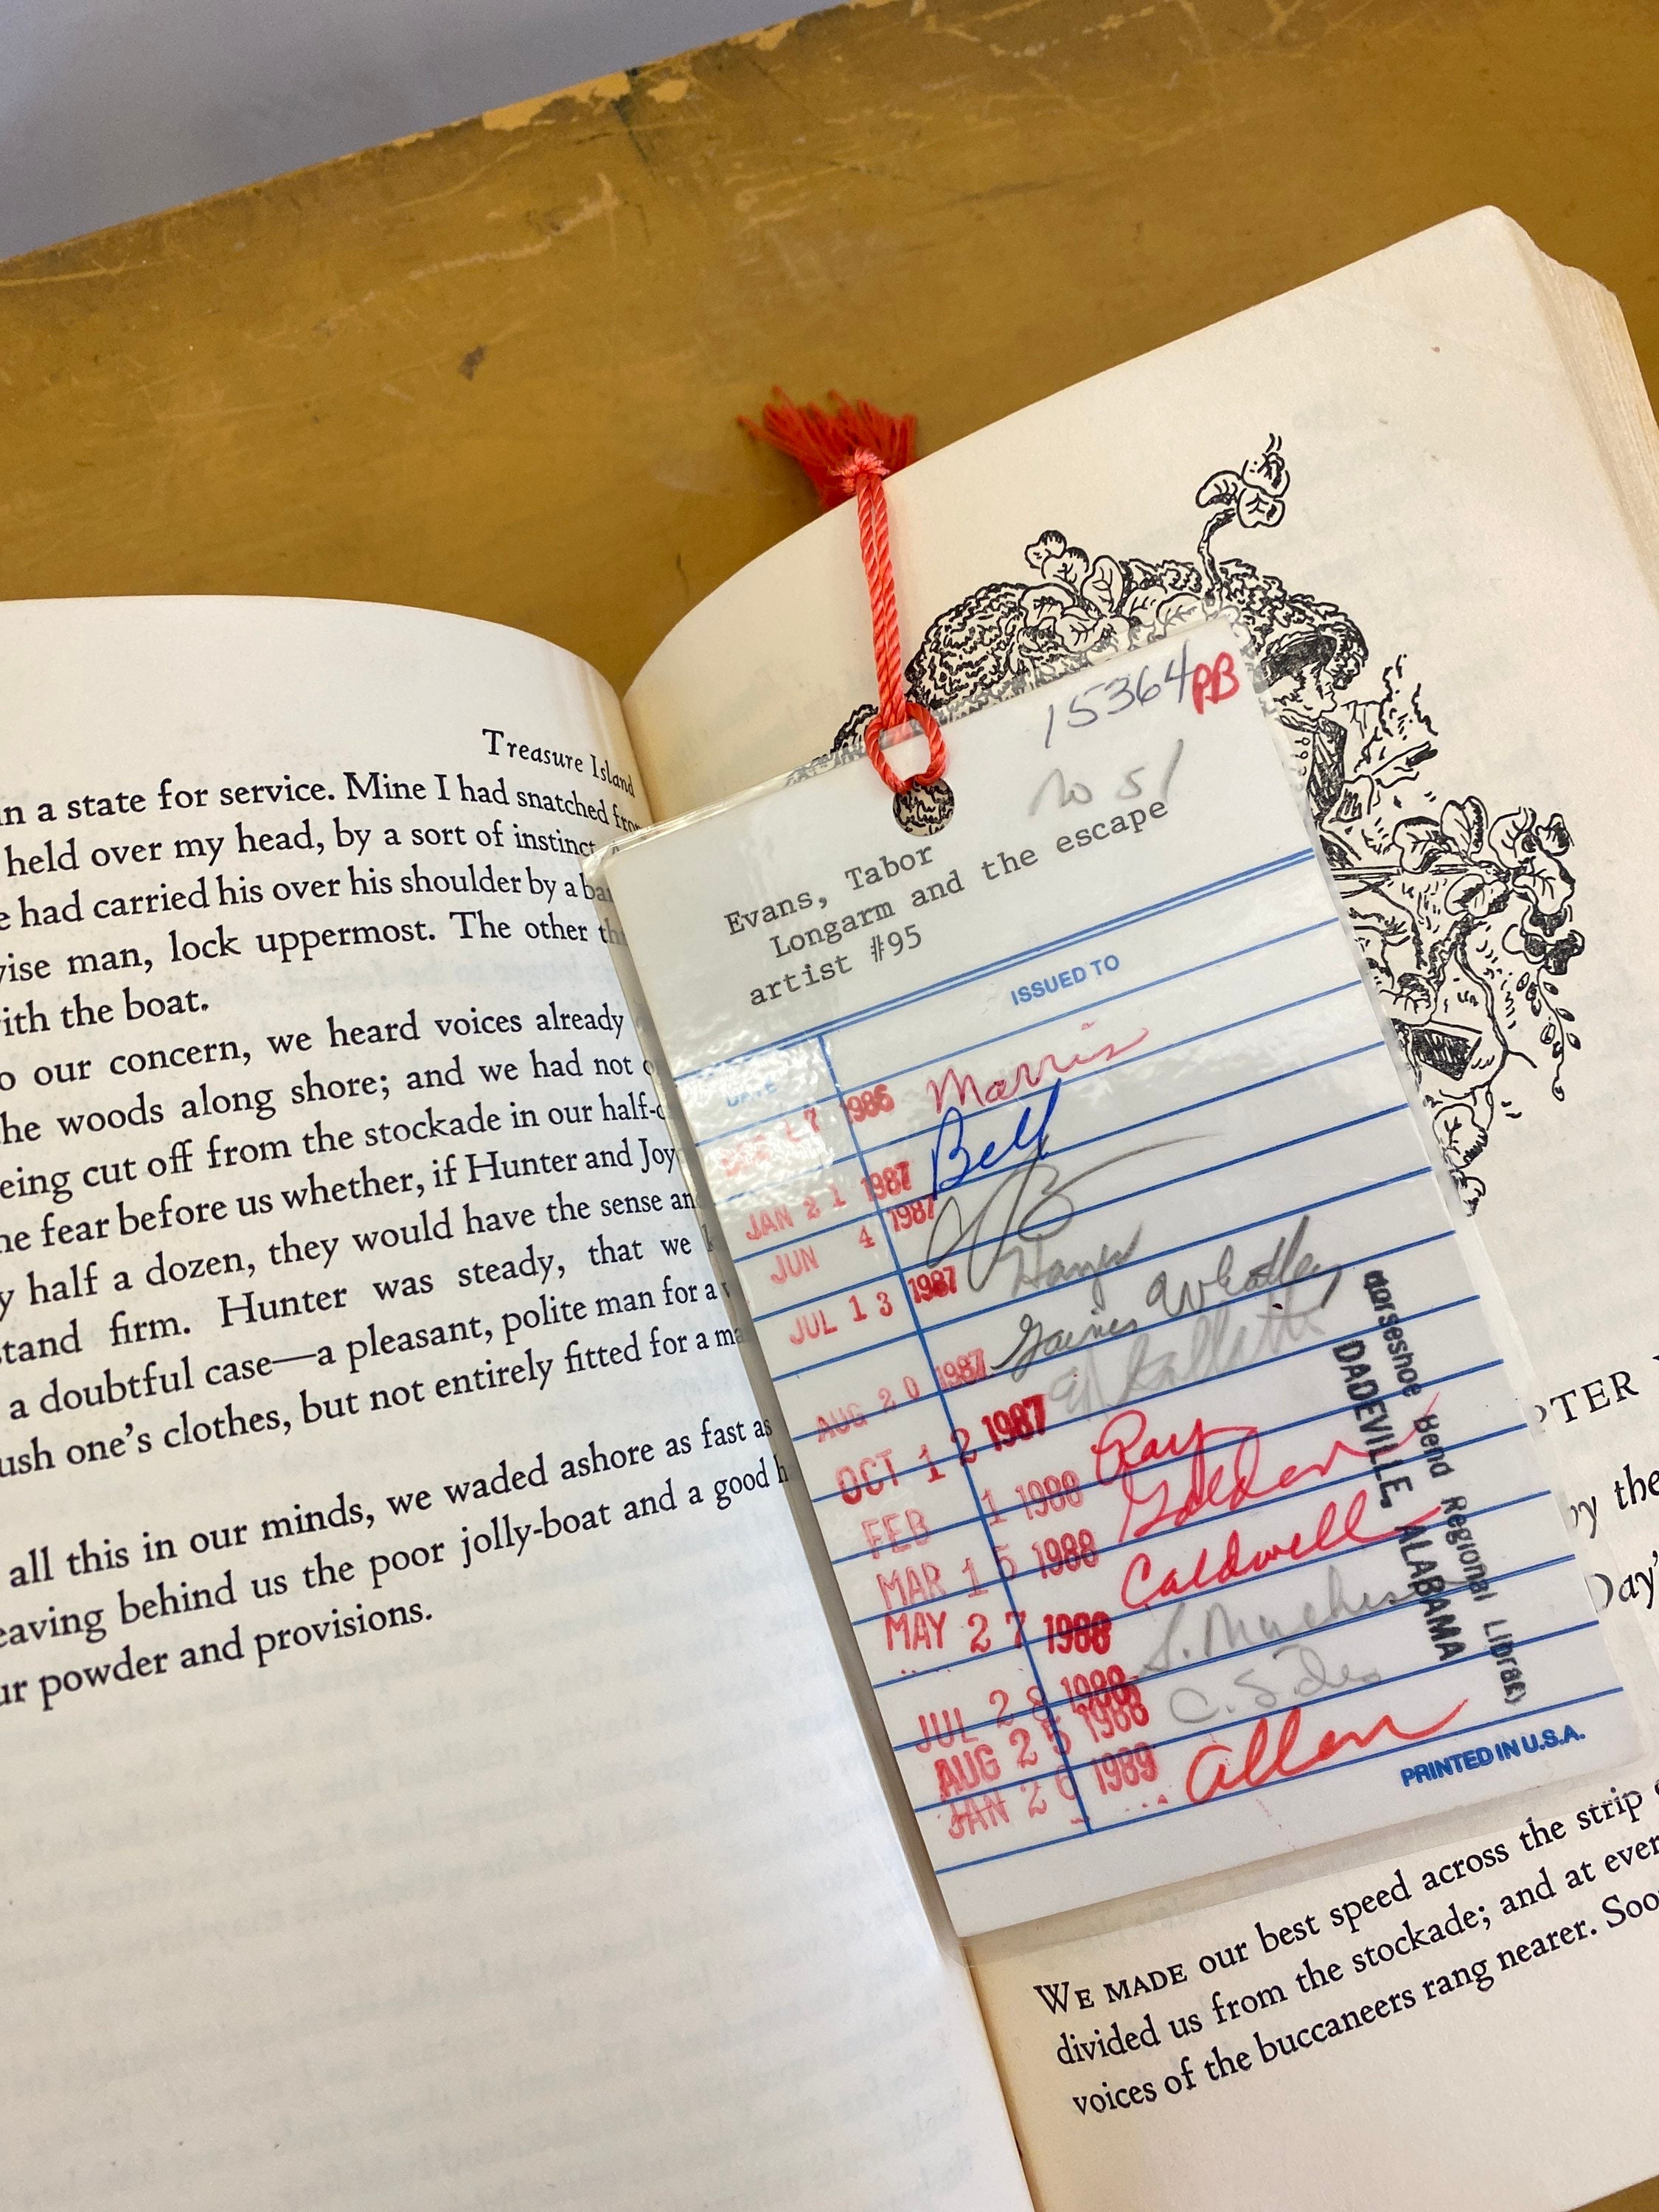 Treasure Island
in a state for service. Mine I had snatched from
held over my head, by a sort of instinct.
e had carried his over his shoulder by a
wise man, lock uppermost. The other
with the boat.
o our concern, we heard voices already
he woods along shore; and we had not
eing cut off from the stockade in our
he fear before us whether, if Hunter and
y half a dozen, they would have the sense
stand firm. Hunter was steady, that we
a doubtful case—a pleasant, polite man for a
ush one's clothes, but not entirely fitted for a
all this in our minds, we waded ashore as fast as
eaving behind us the poor jolly-boat and a good
ur powder and provisions.
15364 PB
no 51
Evans, Tabor
Longarm and the escape
artist #95
DATE
ISSUED TO
17 1986 Morris
JAN 21 1987 Bell
JUN 4 1987
JUL 13 1987 Hayes
AUG 20 1987 Gaines
OCT 12 1987
FEB 1 1988 Ray
MAR 15 1988 Golden
MAY 27 1988 Caldwell
JUL 28 1988
AUG 25 1988
JAN 26 1989 Allen
PRINTED IN U.S.A.
Horseshoe Bend Regional Library
DADEVILLE, ALABAMA
PTER
y the
Day'
WE MADE our best speed across the strip
divided us from the stockade; and at ever
voices of the buccaneers rang nearer. Soo